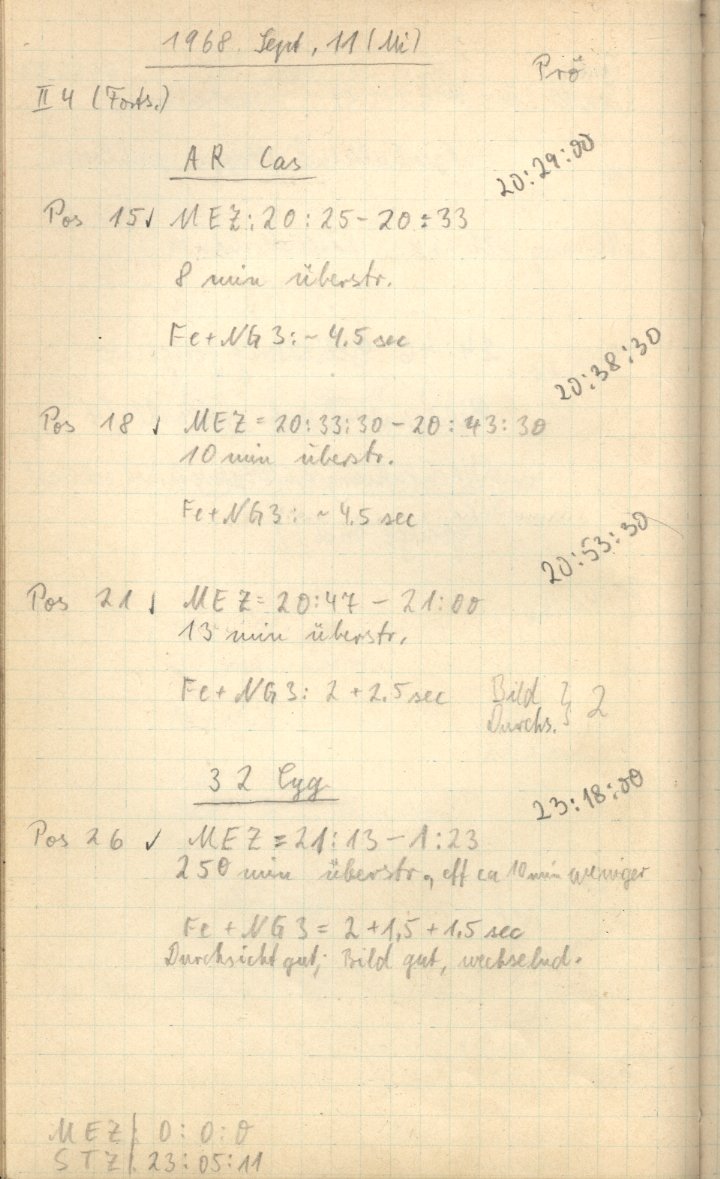 1968. Sept, 11 (Mi)
Prö
II 4 (Forts.)
AR Cas
20:29:00
Pos 15 ✓ MEZ: 20:25 - 20:33
8 min überstr.
Fe+NG3: ~ 4.5 sec
20:38:30
Pos 18 ✓ MEZ = 20:33:30 - 20:43:30
10 min überstr.
Fe+NG3: ~ 4.5 sec
20:53:30
Pos 21 ✓ MEZ = 20:47 - 21:00
13 min überstr.
Fe+NG3: 2 + 2.5 sec Bild } 2
Durchs.
32 Cyg
23:18:00
Pos 26 ✓ MEZ = 21:13 - 1:23
250 min überstr., eff ca 10 min weniger
Fe + NG3 = 2 + 1,5 + 1.5 sec
Durchsicht gut; Bild gut, wechselnd.
MEZ | 0:0:0
STZ | 23:05:11